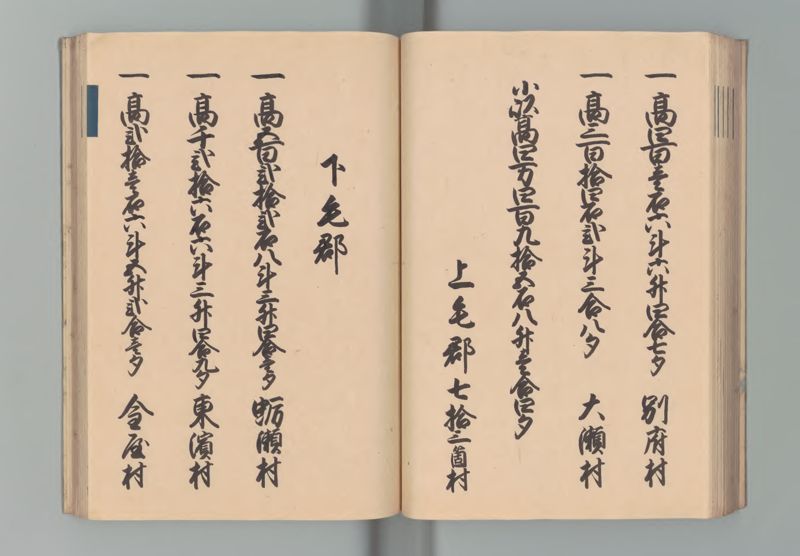 一高四百壱石六斗六升四合七夕 別府村
一高三百拾四石弐斗三合八夕 大瀬村
小以高四万四百九拾五石八升壱合四夕
上毛郡七拾三箇村
下毛郡
一高五百弐拾弐石八斗三升四合壱夕 蛎瀬村
一高千弐拾六石六斗三升四合九夕 東濱村
一高弐拾壱石六斗五升弐合壱夕 金屋村